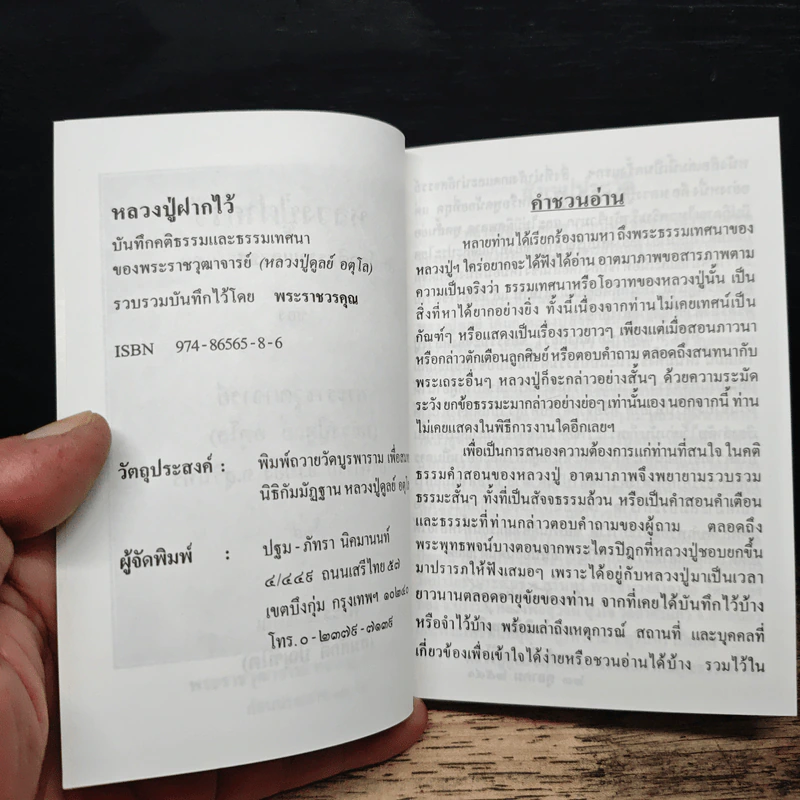 หลวงปู่ฝากไว้
บันทึกคติธรรมและธรรมเทศนา
ของพระราชวุฒาจารย์ (หลวงปู่ดูลย์ อตุโล)
รวบรวมบันทึกไว้โดย พระราชวรคุณ
ISBN 974-86565-8-6
วัตถุประสงค์ : พิมพ์ถวายวัดบูรพาราม
นิธิกัมมัฏฐาน หลวงปู่ดูลย์
ผู้จัดพิมพ์ : ปฐม - ภัทรา นิคมานนท์
๔/๔๔๙ ถนนเสรีไทย ๕๗
เขตบึงกุ่ม กรุงเทพฯ ๑๐๒๔๐
โทร. ๐-๒๓๗๙-๗๑๓๙
คำชวนอ่าน
หลายท่านได้เรียกร้องถามหา ถึงพระธรรมเทศนาของ
หลวงปู่ฯ ใคร่อยากจะได้ฟังได้อ่าน อาตมาภาพขอสารภาพตาม
ความเป็นจริงว่า ธรรมเทศนาหรือโอวาทของหลวงปู่นั้น เป็น
สิ่งที่หาได้ยากอย่างยิ่ง ทั้งนี้เนื่องจากท่านไม่เคยเทศน์เป็น
กัณฑ์ๆ หรือแสดงเป็นเรื่องราวยาวๆ เพียงแต่เมื่อสอนภาวนา
หรือกล่าวตักเตือนลูกศิษย์ หรือตอบคำถาม ตลอดถึงสนทนากับ
พระเถระอื่นๆ หลวงปู่ก็จะกล่าวอย่างสั้นๆ ด้วยความระมัด
ระวัง ยกข้อธรรมะมากล่าวอย่างย่อๆ เท่านั้นเอง นอกจากนี้ ท่าน
ไม่เคยแสดงในพิธีการงานใดอีกเลยฯ
เพื่อเป็นการสนองความต้องการแก่ท่านที่สนใจ ในคติ
ธรรมคำสอนของหลวงปู่ อาตมาภาพจึงพยายามรวบรวม
ธรรมะสั้นๆ ทั้งที่เป็นสัจจธรรมล้วน หรือเป็นคำสอนคำเตือน
และธรรมะที่ท่านกล่าวตอบคำถามของผู้ถาม ตลอดถึง
พระพุทธพจน์บางตอนจากพระไตรปิฎกที่หลวงปู่ชอบยกขึ้น
มาปรารภให้ฟังเสมอๆ เพราะได้อยู่กับหลวงปู่มาเป็นเวลา
ยาวนานตลอดอายุขัยของท่าน จากที่เคยได้บันทึกไว้บ้าง
หรือจำไว้บ้าง พร้อมเล่าถึงเหตุการณ์ สถานที่ และบุคคลที่
เกี่ยวข้องเพื่อเข้าใจได้ง่ายหรือชวนอ่านได้บ้าง รวมไว้ใน